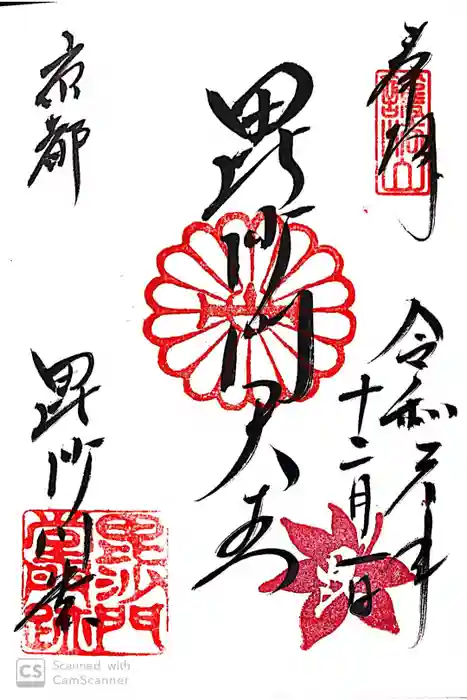 奉拝
令和元年
十二月一日
毘沙門天王
京都
毘沙門堂
護法山
毘沙門
堂門跡
CS Scanned with
CamScanner